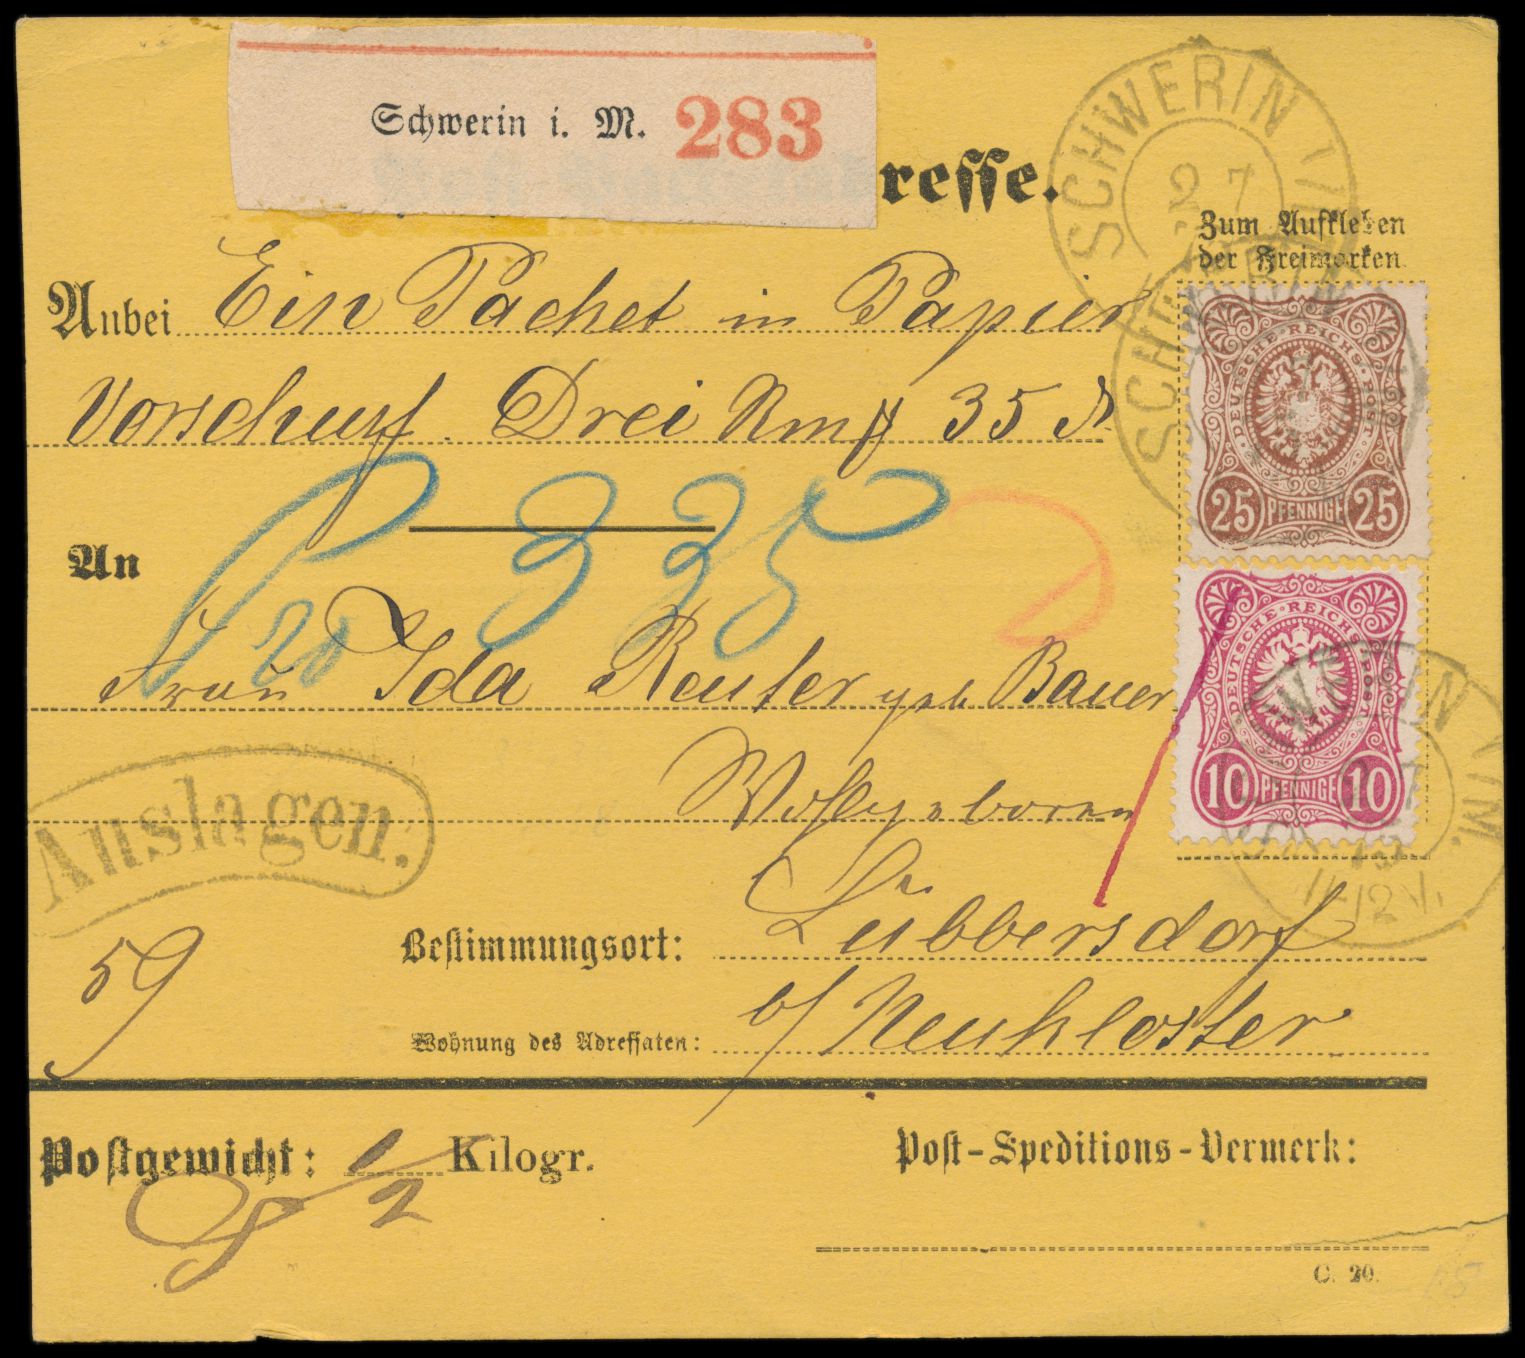 Schwerin i. M. 283
resse.
SCHWERIN I/M.
27
Zum Aufkleben
der Freimarken.
Anbei Ein Packet in Papier
Vorschuss. Drei Rmk 35 ₰
335
DEUTSCHE REICHS-POST
25 PFENNIGE 25
An
20
Frau Ida Reuter geb. Bauer
DEUTSCHE REICHS-POST
10 PFENNIGE 10
Auslagen.
59
Bestimmungsort: Lübbersdorf
Wohnung des Adressaten: b/ Neukloster
Postgewicht: 1/2 Kilogr.
Post-Speditions-Vermerk:
C. 20.